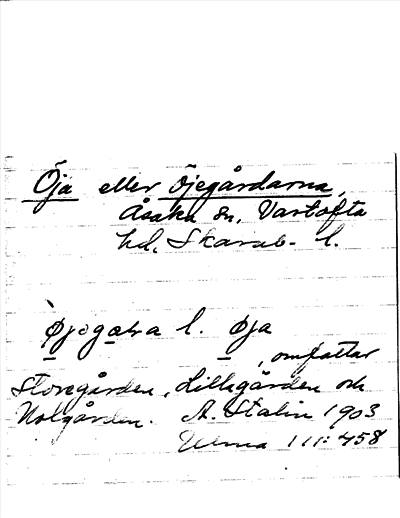 Öja eller Öjegårdarna,
Åsaka sn, Vartofta
hd, Skarab. l.
Øjegaƚra l. øja
, omfattar
Storegården, Lillegården och
Nolgården. A. Stalin 1903
Ulma 111:458